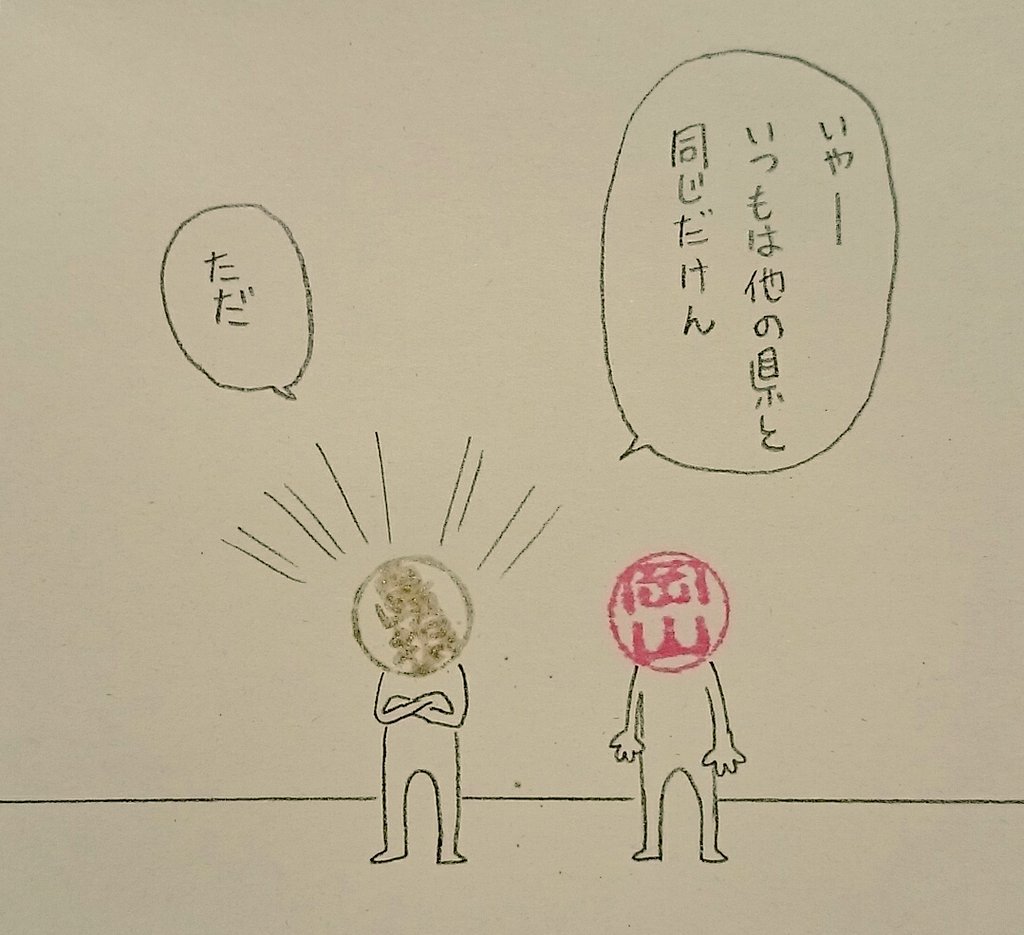 いやー
いつもは他の県と
同じだけん
ただ
岡山